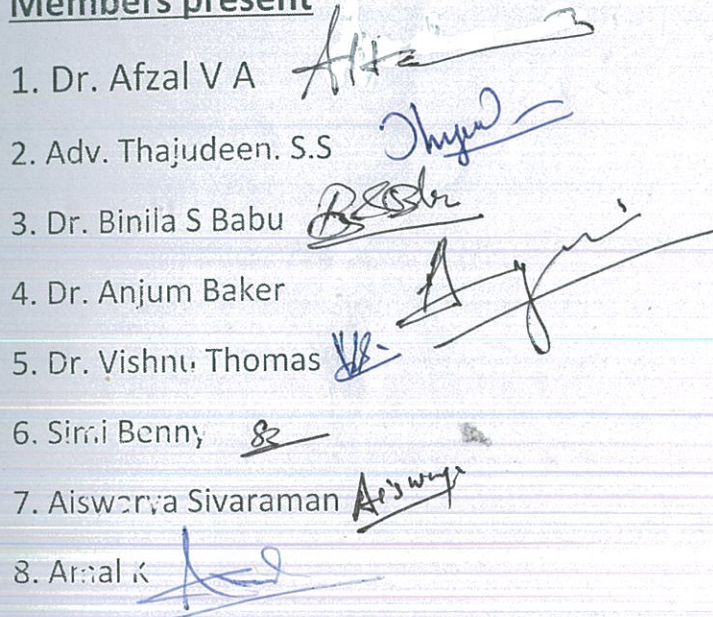 Members present
1. Dr. Afzal V A
2. Adv. Thajudeen. S.S
3. Dr. Binila S Babu
4. Dr. Anjum Baker
5. Dr. Vishnu Thomas
6. Simi Benny
7. Aiswarya Sivaraman Aiswarya
8. Amal K